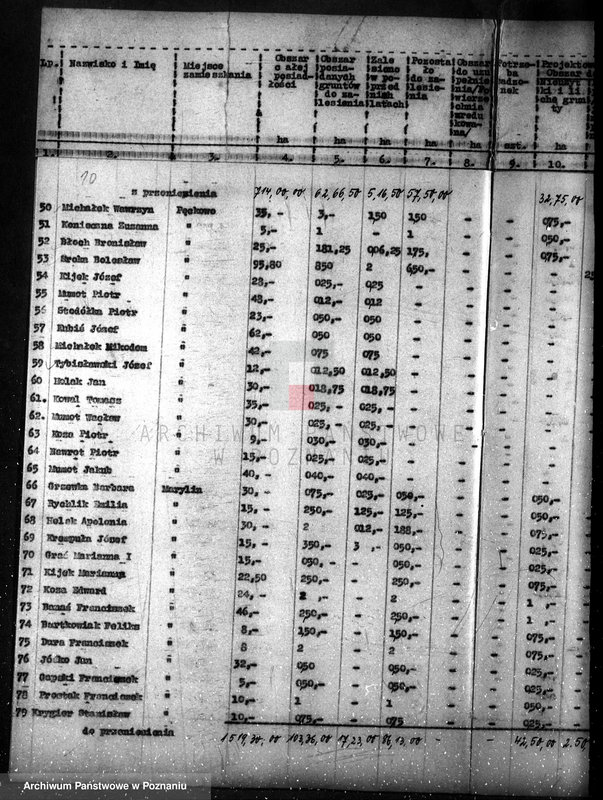 Lp. Nazwisko i Imię Miejsce zamieszkania Obszar całej posiadłości Obszar posiadanych gruntów do zalesienia Zalesiono w poprzednich latach Pozostało do zalesienia Obszar do uzupełnienia/Powierzchnia zredukowana/ Potrzeba sadzonek
ha ha ha ha ha szt. ha
1. 2. 3. 4. 5. 6. 7. 8. 9. 10.
10
z przeniesienia 714,00,00 62,66,50 5,16,50 57,50,00 32,75,00
50 Michałek Wawrzyn Pęckowo 35,- 3,- 150 150 - - 075,-
51 Konieczna Zuzanna " 5,- 1 - 1 - - 050,-
52 Błoch Bronisław " 25,- 181,25 006,25 175, - - 075,-
53 Sroka Bolesław " 95,80 850 2 650,- - -
54 Kijek Józef " 28,- 025,- 025 - - -
55 Mumot Piotr " 48,- 012,- 012 - - -
56 Stodółka Piotr " 23,- 050,- 050 - - -
57 Kubiś Józef " 62,- 050 050 - - -
58 Michałek Nikodem " 42,- 075 075 - - -
59 Tybisławski Józef " 12,- 012,50 012,50 - - -
60 Holak Jan " 30,- 018,75 018,75 - - -
61. Kowal Tomasz " 35,- 025,- 025,- - - -
62. Mumot Wacław " 30,- 025,- 025,- - - -
63 Koza Piotr " 9,- 030,- 030,- - - -
64 Nawrot Piotr " 15,- 025,- 025,- - - -
65 Mumot Jakub " 40,- 040,- 040,- - - -
66 Grzewka Barbara Marylin 30,- 075,- 025,- 050,- - - 050,-
67 Rychlik Emilia " 15,- 250,- 125,- 125,- - - 050,-
68 Holak Apolonia " 30,- 2 012,- 188,- - - 075,-
69 Krzepuła Józef " 15,- 350,- 3 ,- 050,- - - 025,-
70 Grać Marianna I " 15,- 050,- - 050,- - - 025,-
71 Kijek Marianna " 22,50 250,- - 250,- - - 075,-
72 Koza Edward " 24,- 2 ,- - 2 - - 1 ,-
73 Banaś Franciszek " 46,- 250,- - 250,- - - 1 ,-
74 Bartkowiak Feliks " 8,- 150,- - 150,- - - 075,-
75 Dura Franciszek " 8 2 - 2 - - 075,-
76 Jóźko Jan " 32,- 050 - 050,- - - 025,-
77 Gapski Franciszek " 5,- 050,- - 050,- - - 025,-
78 Prostak Franciszek " 10,- 1 - 1 - - 050,-
79 Krygier Stanisław " 10,- 075,- - 075 - - 025,-
do przeniesienia 1519,30,00 103,36,00 17,23,00 86,13,00 - - 42,50,00 2.50
ARCHIWUM PAŃSTWOWE
W POZNANIU
Archiwum Państwowe w Poznaniu